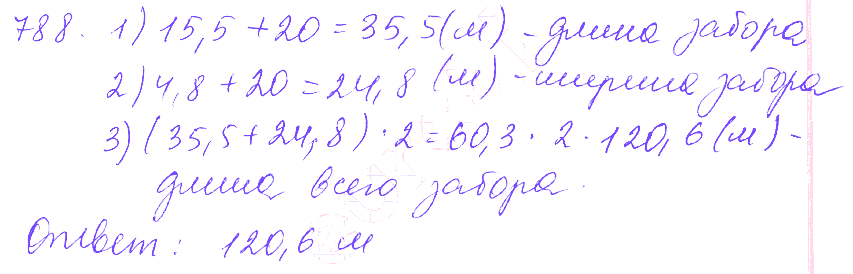 788. 1) 15,5 + 20 = 35,5 (м) - длина забора
2) 4,8 + 20 = 24,8 (м) - ширина забора
3) (35,5 + 24,8) · 2 = 60,3 · 2 · 120,6 (м) -
длина всего забора.
Ответ: 120,6 м